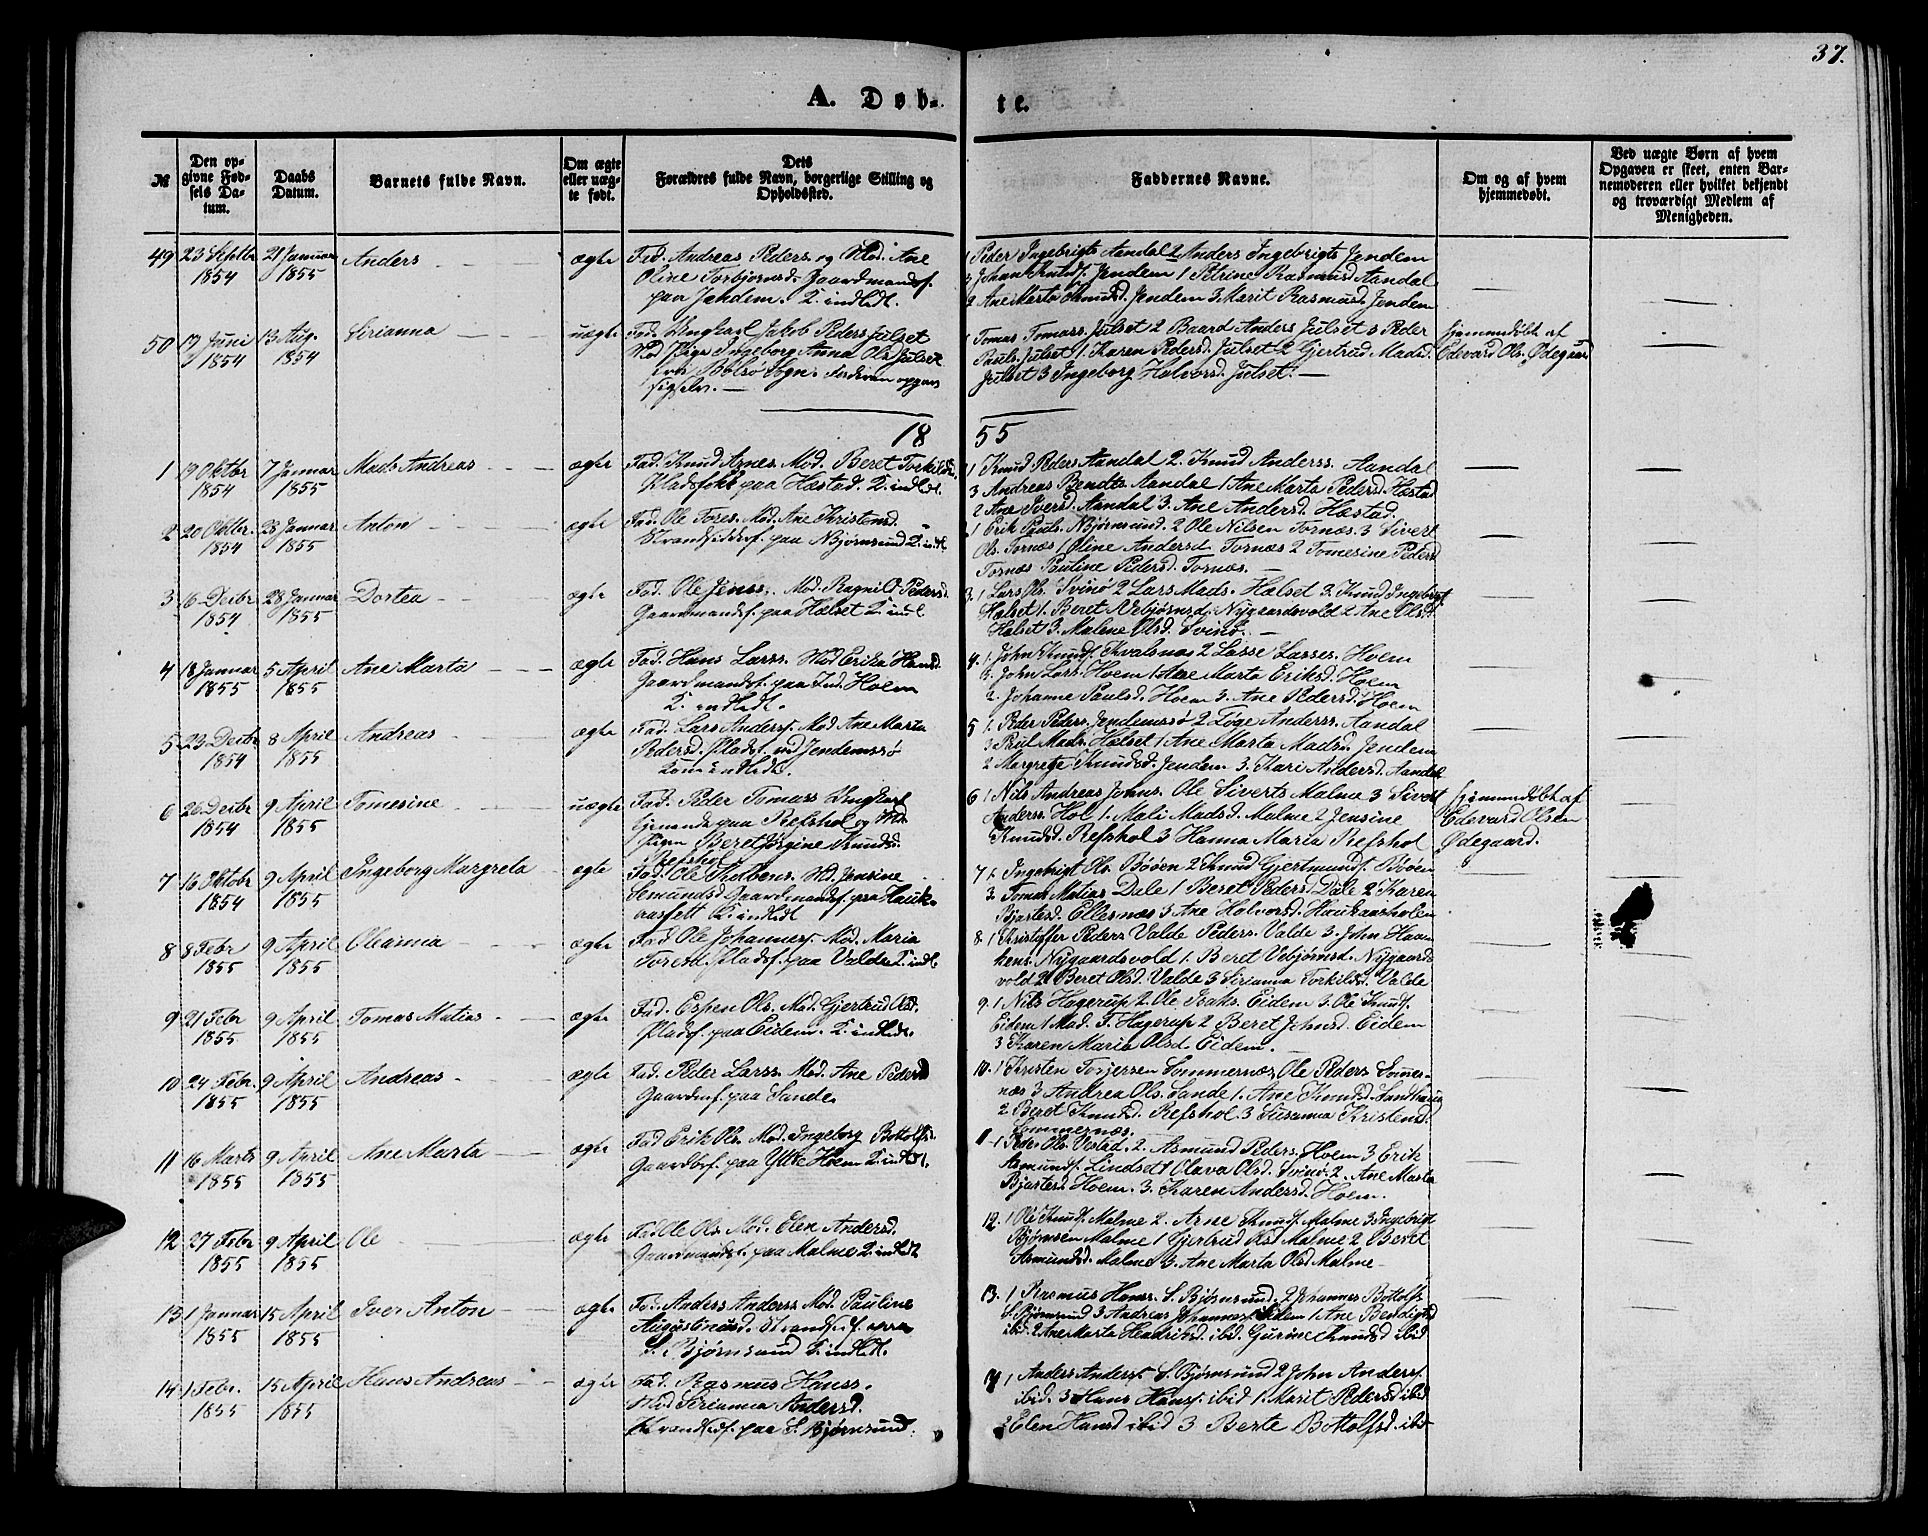 37.
A. Døb-
te.
№
Den op-
givne Fød-
sels Da-
tum.
Daabs
Datum.
Barnets fulde Navn.
Om ægte
eller uæg-
te født.
Dets
Forældres fulde Navn, borgerlige Stilling og
Opholdssted.
Faddernes Navne.
Om og af hvem
hjemmedøbt.
Ved uægte Børn af hvem
Opgaven er skeet, enten Bar-
nemoderen eller hvilket bekjendt
og troværdigt Medlem af
Menigheden.
49 23 Septbr 21 Januar Anders ægte Fad. Andreas Peders og Mod. Ane
1854 1855 Oline Torbjørnsd. Gaardmandsf.
paa Jendem. K. indledt.
1 Peder Ingebrigts Aandal 2 Anders Ingebrigts Jendem
3 Johan Knuds. Jendem 1 Petrine Rasmusd. Aandal
2 Ane Marta Knudsd. Jendem 3 Marit Rasmusd. Jendem
50 17 Juni 13 Aug. Sirianna uægte Fad. Ungkarl Jakob Peders Julset
1854 1854 Mod Pige Ingeborg Anna Ols Julset
Bolsø Sogn.
1 Tomas Tomass. Julset 2 Baard Anders Julset 3 Peder
Pauls. Julset 1 Karen Pedersd. Julset 2 Gjertrud Madsd.
Julset 3 Ingeborg Halvorsd. Julset.
hjemmedøbt af
Edevard Ols. Ødegaard
18 55
1 19 Oktbr 7 Januar Mads Andreas ægte Fad. Knud Arnes. Mod. Beret Torkilds
1854 1855 Pladsfolk paa Hæstad. K. indledt.
1 Knud Peders Aandal 2. Knud Anderss. Aandal
3 Andreas Bendts Aandal 1 Ane Marta Pedersd. Hæstad
2 Ane Iversd. Aandal 3. Ane Andersd. Hæstad.
2 20 Oktbr. 28 Januar Anton ægte Fad. Ole Tores. Mod. Ane Kristensd.
1854 1855 Strandsidderf. paa N Bjørnsund K. indl
1 Erik Pauls. N Bjørnsund. 2 Ole Nilsen Tornæs. 3 Sivert
Ols. Tornæs 1 Oline Andersd. Tornæs 2 Tomesine Pedersd
Tornæs Pauline Pedersd. Tornæs.
3 16 Decbr 28 Januar Dortea ægte Fad. Ole Jenss. Mod. Ragnild Pedersd.
1854 1855 Gaardmandsf. paa Hælset K. indl
3. 1 Lars Ols. Svinø 2 Lars Mads. Hælset 3. Knud Ingebrigt
Hælset 1. Beret Vebjørnsd. Nygaardsvold 2 Ane Olsd.
Halset 3. Malene Olsd. Svinø.
4 18 Januar 5 April Ane Marta ægte Fad. Hans Larss. Mod Erika Hansd
1855 1855 Gaardmandsf. paa Ind. Hoem
K. indledt.
4. 1. John Knuds. Kvalsnæs 2 Lasse Lasses. Hoem
3. John Lars. Hoem 1 Ane Marta Eriksd. Hoem
2. Johanne Paulsd. Hoem 3. Ane Pedersd. Hoem
5 23 Decbr 8 April Andreas ægte Fad. Lars Anderss. Mod Ane Marta
1854 1855 Pedersd. Pladsf. ved Jendemssø
Kone indledt.
5 1. Peder Peders. Jendemssø 2 Tøge Anderss. Aandal
3 Poul Mads. Hælset 1 Ane Marta Madsd. Jendem
2 Margrete Knudsd. Jendem 3. Kari Andersd. Aandal
6 26 Decbr 9 April Tomesine uægte Fad. Peder Tomass Ungkarl
1854 1855 tjenende paa Refshol og Mod.
Pigen Beret Jørgine Knudsd.
Refshol
6 1 Nils Andreas Johns. Ole Siverts Malme 3 Sivert
Anderss. Hol 1. Mali Madsd. Malme 2 Jensine
Knudsd. Refshol 3 Hanna Maria Refshol
hjemmedøbt af
Edevard Olsen
Ødegaard.
7 16 Oktobr 9 April Ingeborg Margreta ægte Fad. Ole Md. Jensine
1854 1855 Semundsd Gaardmandsf. paa Hauk-
aasfett K. indledt
7 1. Ingebrigt Ols. Bøøen 2 Knud Gjertmunds. Bøøen
3. Tomas Matias Dale 1 Beret Peders. Dale 2 Karen
Bjartesd. Ellesnæs 3 Ane Halvorsd. Haukaasholen
8 8 Febr 9 April Oleanna ægte Fad Ole Johannes. Mod. Maria
1855 1855 Toresd. Pladsf. paa Valde K. indl
8. 1 Kristoffer Peders Valde Peders. Valde 3. John Haa-
kens. Nygaardsvold 1. Beret Vebjørnsd. Nygaards
vold 2 Beret Olsd. Valde 3 Sirianna Torkildsd. Valde
9 21 Febr 9 April Tomas Matias ægte Fad. Espen Ols. Mod. Gjertrud Olsd.
1855 1855 Pladsf. paa Eidem. K. indledt.
9. 1 Nils Hagerup 2 Ole Isaks. Eidem 3. Ole Knuds.
Eidem 1 Mad. F. Hagerup 2 Beret Johnsd. Eidem
3 Karen Maria Olsd. Eidem.
10 24 Febr. 9 April Andreas ægte Fad. Peder Larss. Mod. Ane Pedersd
1855 1855 Gaardmf. paa Sande.
10. 1 Kristen Torjersen Sommernæs, Ole Peders Somer-
næs 3 Andrea Ols. Sande 1. Ane Knudsd.
2 Beret Knudsd. Refshol 3 Susanna Kristensd.
Sommernæs.
11 16 Marts 9 April Ane Marta ægte Fad Erik Ols. Mod. Ingeborg Bottolfsd.
1855 1855 Gaardbrf. paa Ytre Hoem K. indledt.
11 1 Peder Ols. Vestad. 2. Asmund Peders. Hoem 3 Erik
Asmunds. Lindset 1 Olava Olsd. Svinø. 2. Ane Marta
Bjartesd. Hoem. 3. Karen Andersd. Hoem.
12 27 Febr 9 April Ole ægte Fad. Ole Ols. Mod. Elen Andersd.
1855 1855 Gaardmandsf. paa Malme K. indledt
12. 1 Ole Knuds. Malme 2. Arne Knuds. Malme 3 Ingebrigt
Bjørnsen Malme 1 Gjertrud Malme 2 Beret
Asmundsd. Malme 3. Ane Marta Olsd Malme
13 1 Januar 15 April Iver Anton ægte Fad. Anders Anderss Mod. Pauline
1855 1855 Augustinusd. Strandsf. paa
S. Bjørnsund K. indledt.
13. 1 Rasmus Hanss. S. Bjørnsund. 2 Johannes Bottolfs
S. Bjørnsund 3 Andreas Johannes. 1 Ane Bendigtsd
ibid. 2 Ane Marta Hendriksd. ibid. Gurine Knudsd ibid
14 1 Febr. 15 April Hans Andreas ægte Fad. Rasmus Hanss.
1855 1855 Mod Serianna Andersd.
Strandsidf. paa S. Bjørnsund.
14 1 Anders Anders. S. Bjørnsund 2 John Anders.
ibid. 3 Hans Hans. ibid 1. Marit Pedersd ibid
2 Elen Hansd ibid 3 Berte Bottolfsd. ibid